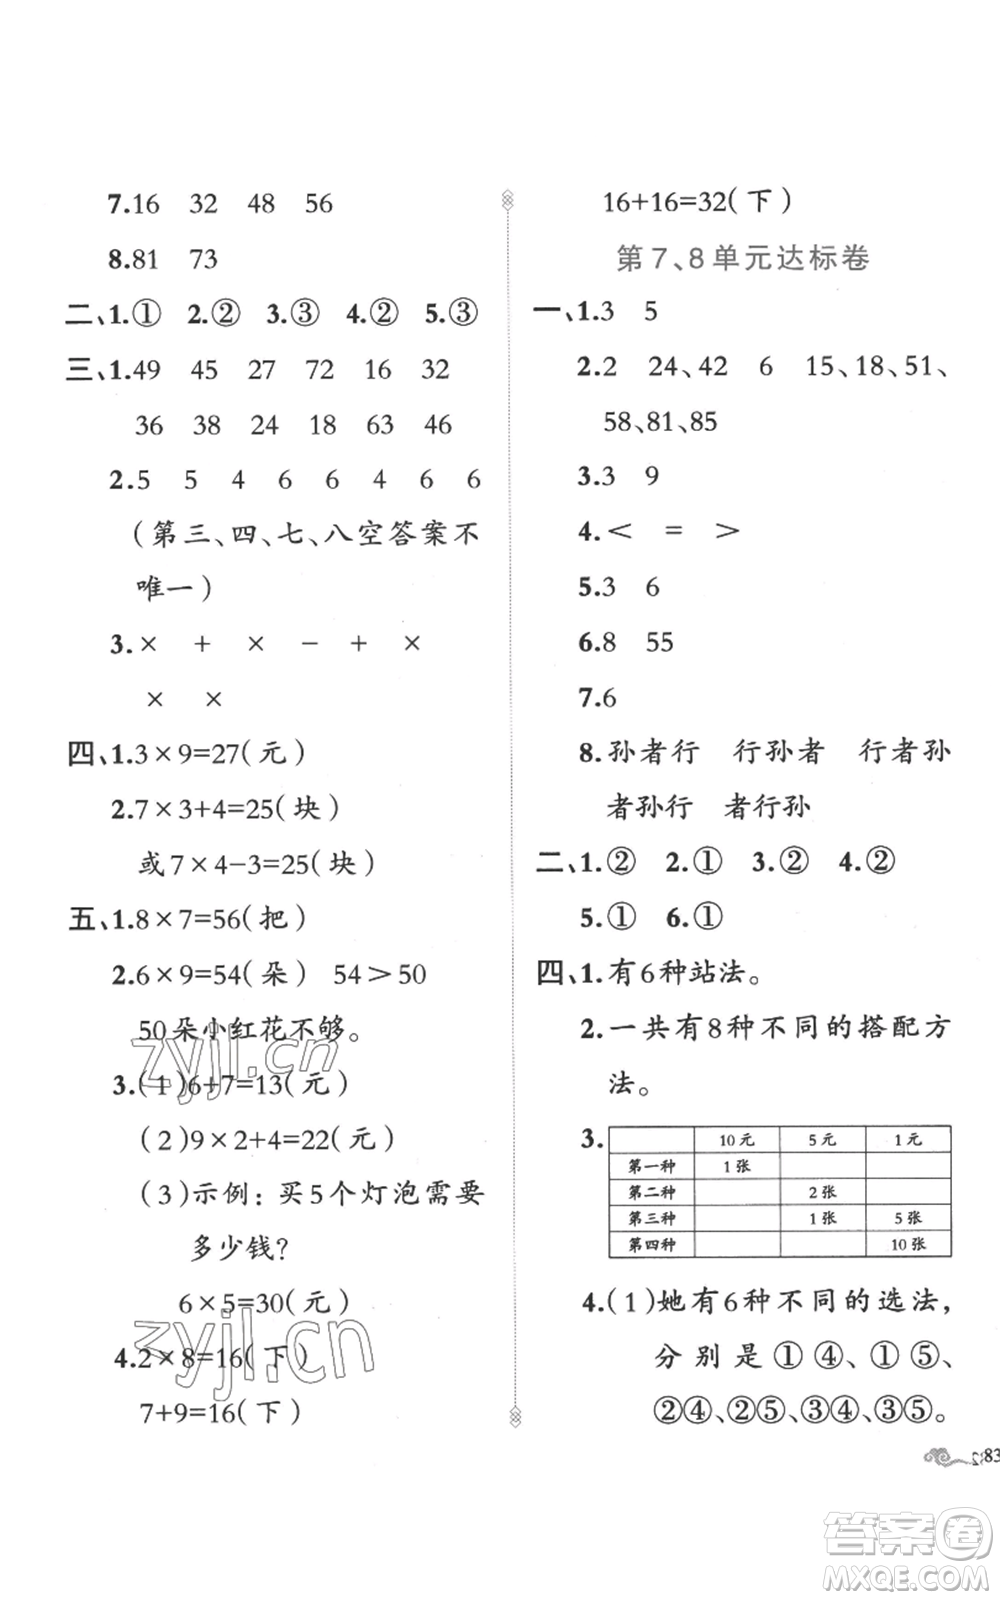 7.16 32 48 56
8.81 73
二、1.① 2.② 3.③ 4.② 5.③
三、1.49 45 27 72 16 32
36 38 24 18 63 46
2.5 5 4 6 6 4 6 6
(第三、四、七、八空答案不
唯一)
3.× + × − + ×
× ×
四、1.3×9=27(元)
2.7×3+4=25(块)
或7×4−3=25(块)
五、1.8×7=56(把)
2.6×9=54(朵) 54>50
50朵小红花不够。
3.(1)6+7=13(元)
(2)9×2+4=22(元)
(3)示例:买5个灯泡需要
多少钱?
6×5=30(元)
4.2×8=16(下)
7+9=16(下)
16+16=32(下)
第7、8单元达标卷
一、1.3 5
2.2 24、42 6 15、18、51、
58、81、85
3.3 9
4.< = >
5.3 6
6.8 55
7.6
8.孙者行 行孙者 行者孙
者孙行 者行孙
二、1.② 2.① 3.② 4.②
5.① 6.①
四、1.有6种站法。
2.一共有8种不同的搭配方
法。
3. 10元 5元 1元
第一种 1张
第二种 2张
第三种 1张 5张
第四种 10张
4.(1)她有6种不同的选法,
分别是①④、①⑤、
②④、②⑤、③④、③⑤。
83
zyjl.cn
zyjl.cn
答案卷
MXQE.COM